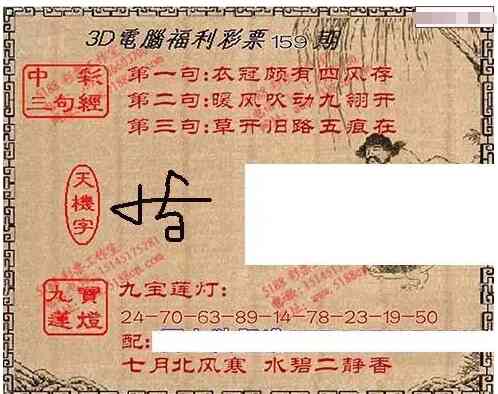 3D電腦福利彩票159期
中彩
三句經
第一句:衣冠颇有四风存
第二句:暖风吹动九翎开
第三句:草开旧路五痕在
天機字
九寶
蓮燈
九宝莲灯:
24-70-63-89-14-78-23-19-50
配:
七月北风寒 水碧二静香